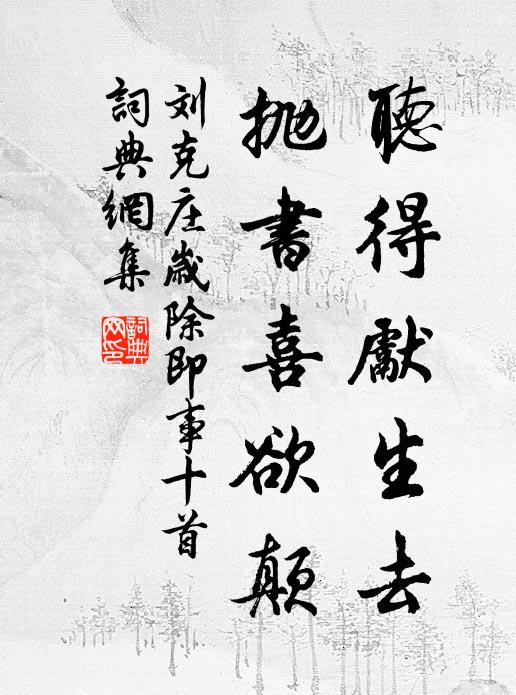 聽得獻生去
拋書喜欲顛
刘克庄歲除即事十首
詞典網集
詞典網印